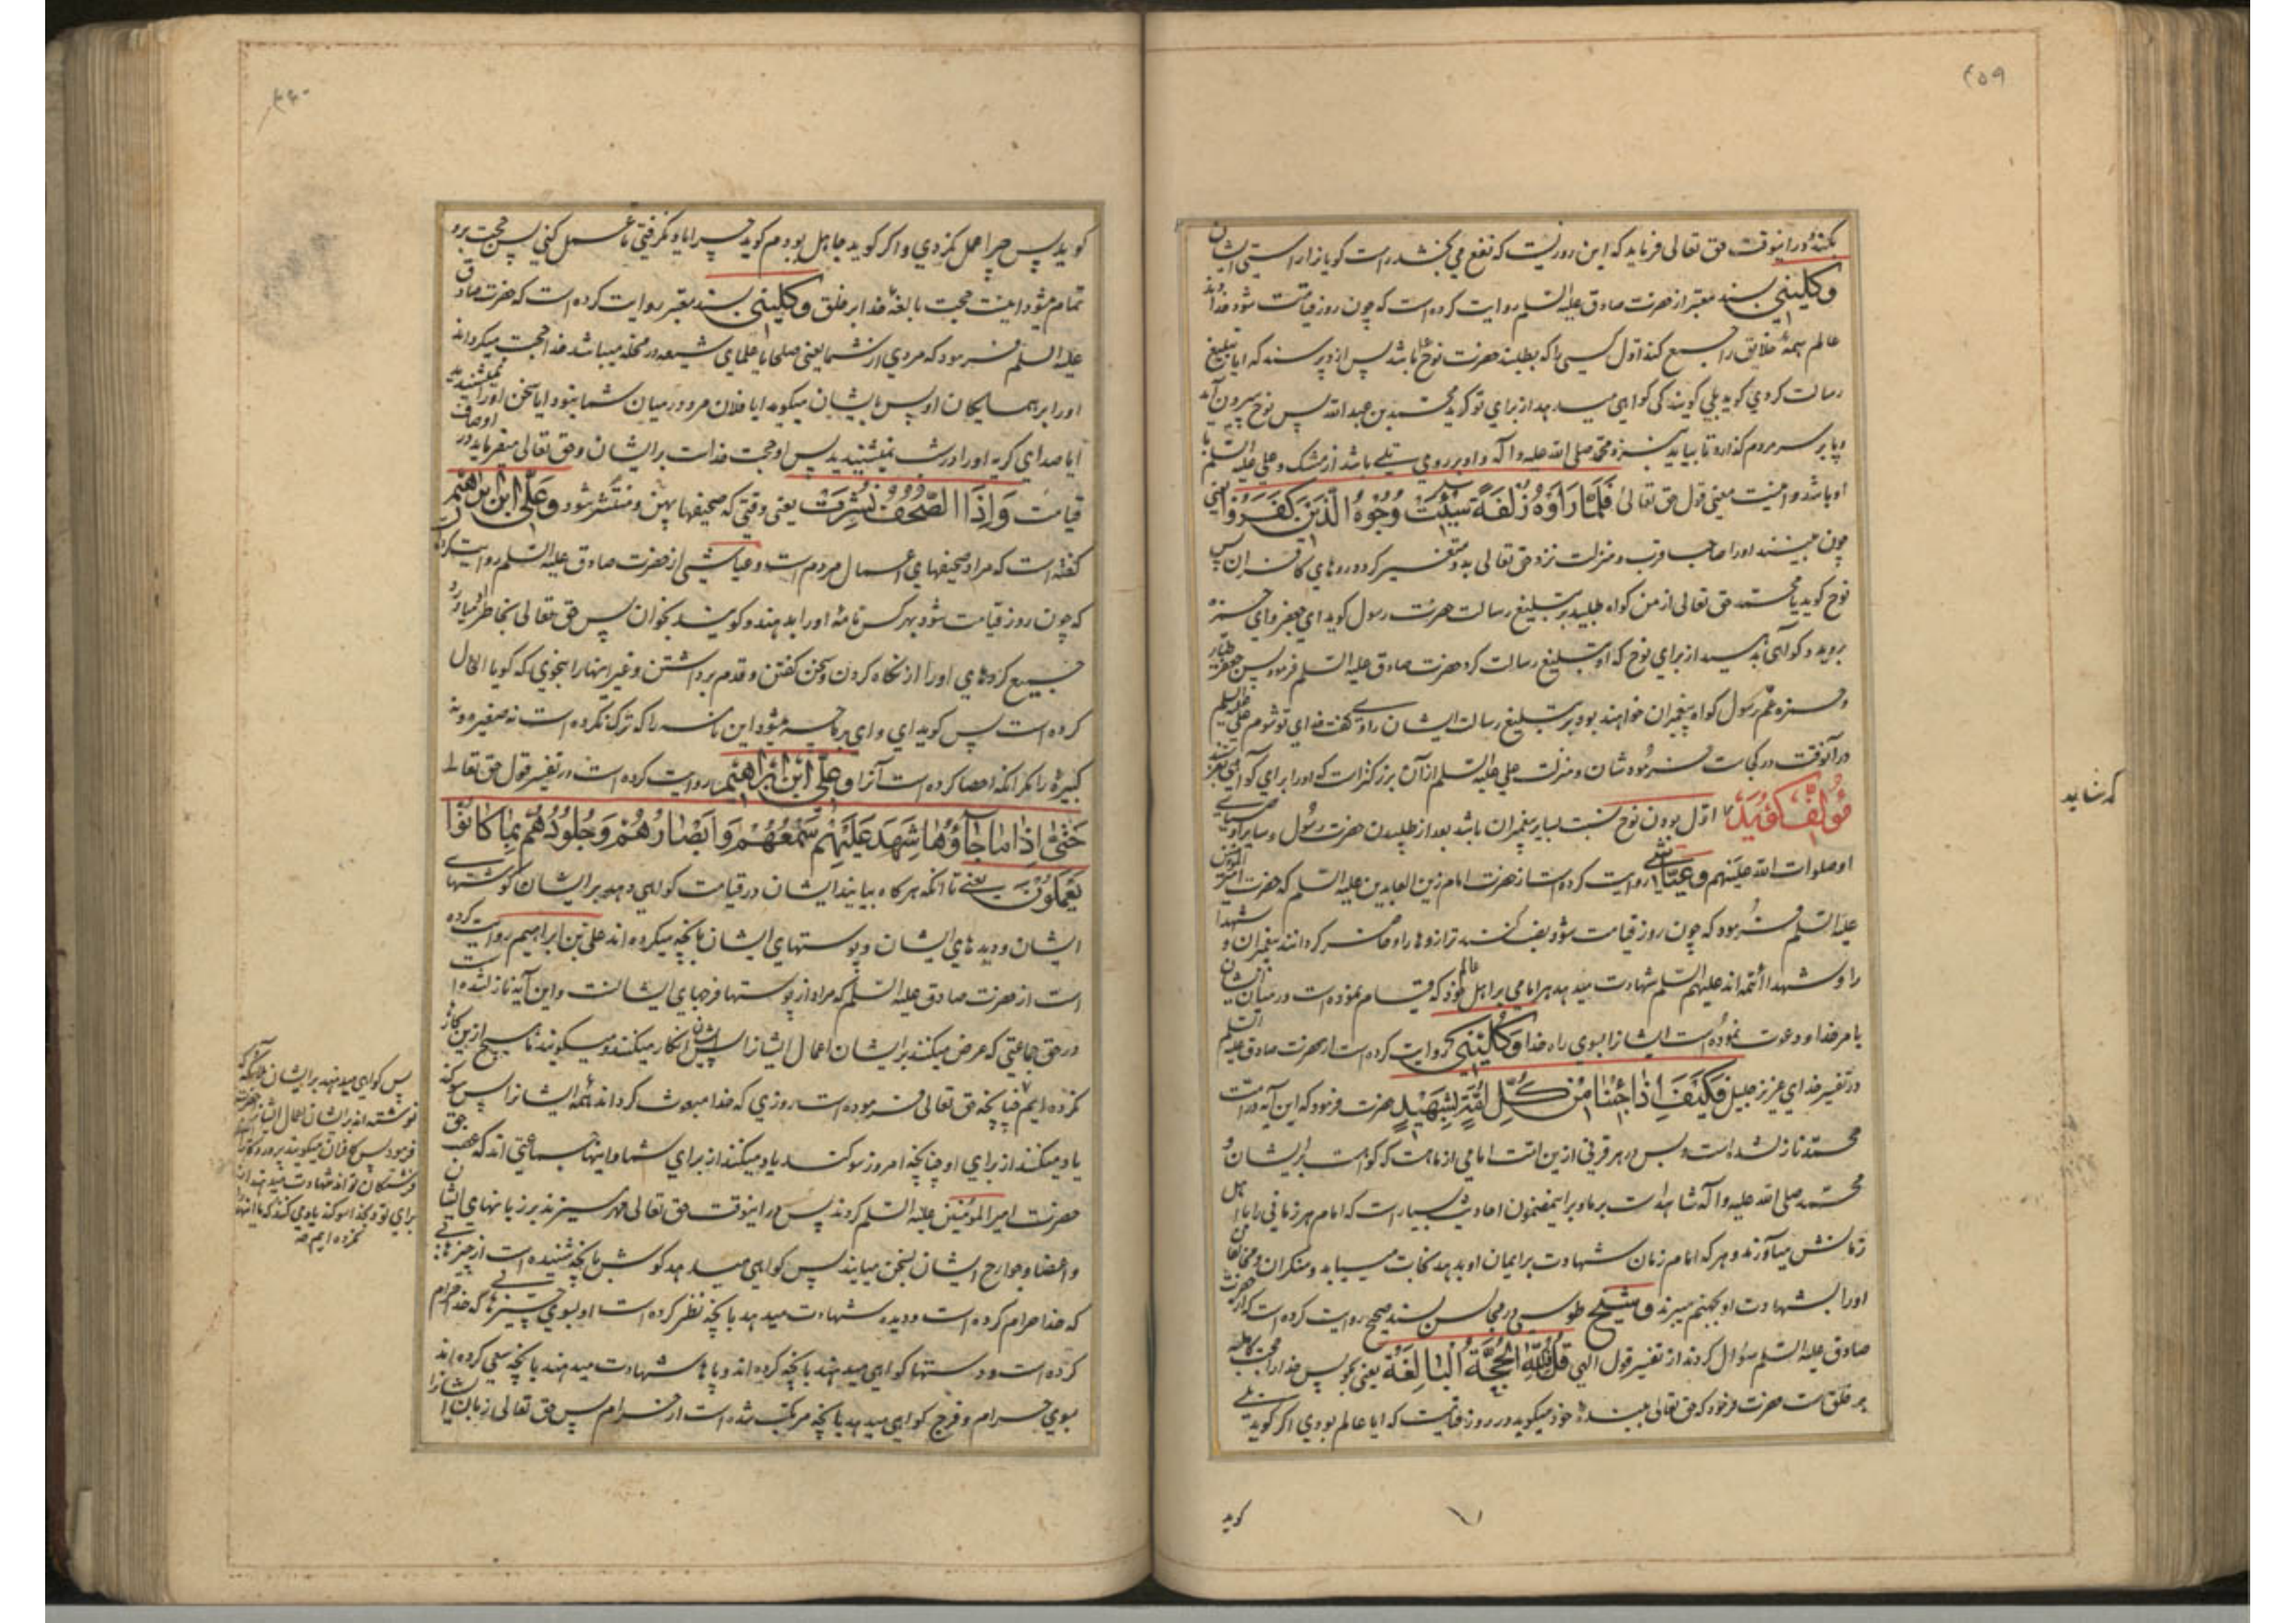 ۴۵۹
بکنند و در اینوقت حق تعالی فرماید که این روزیست که نفع می بخشد راست گویانرا راستی ایشان
وکلینی بسند معتبر از حضرت صادق علیه السلم روایت کرده است که چون روز قیامت شود خداوند
عالم همه خلایق را جمع کند اول کسی را که بطلبند حضرت نوح باشد پس ازو پرسند که ایا تبلیغ
رسالت کردی کوید بلی کویند کی کواهی میدهد از برای تو کوید محمد بن عبد الله پس نوح بیرون آید
و پا بر سر مردم کذارد تا بیاید بنزد محمد صلی الله علیه و آله و او بر روی تلی باشد از مشک و علی علیه السلم با
او باشد و اینست معنی قول حق تعالی فَلَمّا رَاَوْهُ زُلْفَةً سیئَتْ وُجُوهُ الَّذینَ کَفَرُوا یعنی
چون ببینند او را صاحب قرب و منزلت نزد حق تعالی بد و متغیر کردد روهای کافران پس
نوح کوید یا محمد حق تعالی از من کواه طلبید بر تبلیغ رسالت حضرت رسول کوید ای جعفر و ای حمزه
بروید و کواهی بدهید از برای نوح که او تبلیغ رسالت کرد حضرت صادق علیه السلم فرمود پس جعفر طیار
و حمزه عم رسول کواه پیغمبران خواهند بود بر تبلیغ رسالت ایشان راوی کفت فدای تو شوم علی علیه السلم
در آنوقت در کجاست فرمود شان و منزلت علی علیه السلم از آن بزرکتر است که او را برای کواهی بفرستند
مؤلف کوید اول بودن نوح نسبت بسایر پیغمبران باشد بعد از طلبیدن حضرت رسول و سایر اوصیای
او صلوات الله علیهم وعیاشی روایت کرده است از حضرت امام زین العابدین علیه السلم که حضرت امیر المؤمنین
علیه السلم فرمود که چون روز قیامت شود نصب کنند ترازوها را و حاضر کردانند پیغمبران و شهدا
را و شهدا ائمه اند علیهم السلم شهادت میدهد هر امامی بر اهل عالم خود که قیام نموده است در میان ایشان
بامر خدا و دعوت نموده است ایشانرا بسوی راه خدا وکلینی روایت کرده است از حضرت صادق علیه السلم
در تفسیر خدای عزیز جلیل فَکَیْفَ اِذا جِئْنا مِنْ کُلِّ اُمَّةٍ بِشَهیدٍ حضرت فرمود که این آیه در امت
محمد نازل شده است و بس در هر قرنی از این امت امامی از ما هست که کواهست بر ایشان و
محمد صلی الله علیه و آله شاهد است بر ما و بر اینمضمون احادیث بسیار است که امام هر زمانی را با اهل
زمانش میآورند و هر که امام زمان شهادت بر ایمان او بدهد نجات مییابد و منکران و مخالفان
او را بشهادت او بجهنم میبرند و شیخ طوسی در مجالس بسند صحیح روایت کرده است که از حضرت
صادق علیه السلم سؤال کردند از تفسیر قول الهی قُلْ فَلِلّهِ الْحُجَّةُ الْبالِغَةُ یعنی بکو پس خدا را حجت کامله
بر خلق است حضرت فرمود که حق تعالی ببنده خود میکوید در روز قیامت که ایا عالم بودی اکر کوید بلی
کوید
که شاید
۴۶۰
کوید پس چرا عمل نکردی و اکر کوید جاهل بودم کوید چرا یاد نکرفتی تا عمل کنی پس حجت برو
تمام میشود اینست حجت بالغه خدا بر خلق وکلینی بسند معتبر روایت کرده است که حضرت صادق
علیه السلم فرمود که مردی از شما یعنی صلحا یا علمای شیعه در محله میباشد خدا حجت میکرداند
او را بر همسایکان او پس بایشان میکوید ایا فلان مرد در میان شما نبود ایا سخن او را نمیشنیدید
ایا صدای کریه او را در شب نمیشنیدید پس او حجت خداست بر ایشان و حق تعالی میفرماید در اوصاف
قیامت وَاِذَا الصُّحُفُ نُشِرَتْ یعنی وقتی که صحیفها پهن و منتشر شود وعلی ابن ابراهیم
کفته است که مراد صحیفهای اعمال مردم است و عیاشی از حضرت صادق علیه السلم روایت کرده
که چون روز قیامت شود بهر کس نامه او را بدهند و کویند بخوان پس حق تعالی بخاطر او میاورد
جمیع کردهای او را از نکاه کردن و سخن کفتن و قدم برداشتن و غیر اینها را بنحوی که کویا الحال
کرده است پس کوید ای وای بر ما چه میشود این نامه را که ترک نکرده است نه صغیره و نه
کبیره را مکر آنکه احصا کرده است آنرا وعلی ابن ابراهیم روایت کرده است در تفسیر قول حق تعالی
حَتّی اِذا ما جآؤُها شَهِدَ عَلَیْهِمْ سَمْعُهُمْ وَاَبْصارُهُمْ وَجُلُودُهُمْ بِما کانُوا
یَعْمَلُونَ یعنی تا آنکه هرکاه بیایند ایشان در قیامت کواهی دهد بر ایشان کوشهای
ایشان و دیدهای ایشان و پوستهای ایشان بآنچه میکرده اند علی بن ابراهیم روایت کرده
است از حضرت صادق علیه السلم که مراد از پوستها فرجهای ایشانست و این آیه نازل شده است
در حق جماعتی که عرض میکنند بر ایشان اعمال ایشانرا پس ایشان انکار میکنند و میکویند ما هیچ از این کارها
نکرده ایم چنانچه حق تعالی فرموده است روزی که خدا مبعوث کرداند همه ایشانرا پس سوکند
یاد میکنند از برای او چنانچه امروز سوکند یاد میکنند از برای شما و اینها جماعتی اند که غصب حق
حضرت امیر المؤمنین علیه السلم کردند پس در اینوقت حق تعالی مهر میزند بر زبانهای ایشان
و اعضا و جوارح ایشان بسخن میآیند پس کواهی میدهد کوش بآنچه شنیده است از چیزهائی
که خدا حرام کرده است و دیده شهادت میدهد بآنچه نظر کرده است او بسوی چیزهائی که خدا حرام
کرده است و دستها کواهی میدهند بآنچه کرده اند و پاها شهادت میدهند بآنچه سعی کرده اند
بسوی حرام و فرج کواهی میدهد بآنچه مرتکب شده است از حرام پس حق تعالی زبان ایشانرا
پس کواهی میدهند بر ایشان ملائکه که
نوشته اند بر ایشان اعمال ایشانرا حضرت
فرمود پس کافران میکویند پروردکارا
فرشتکان تو اند شهادت میدهند از
برای تو و بخدا سوکند یاد می کنند که ما اینها
نکرده ایم